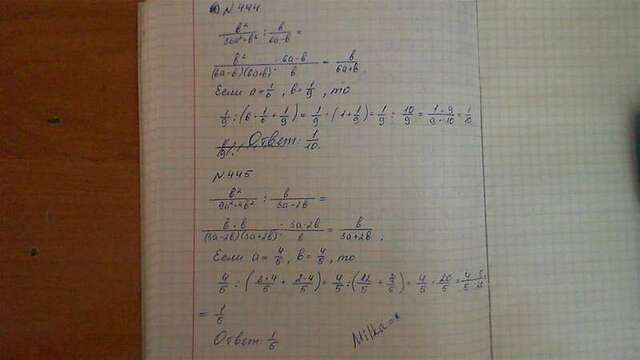 N 444
b² / (36a²-b²) : b / (6a-b) =
b² · 6a-b / (6a-b)(6a+b) · b = b / (6a+b).
Если a = 1/6, b = 1/9, то
1/9 : (6 · 1/6 + 1/9) = 1/9 : (1 + 1/9) = 1/9 : 10/9 = (1 · 9) / (9 · 10) = 1/10
Ответ: 1/10.
N 445
b² / (9a²-4b²) : b / (3a-2b) =
b · b · 3a-2b / (3a-2b)(3a+2b) · b = b / (3a+2b).
Если a = 4/5, b = 4/5, то
= 1/5
Ответ: 1/5
Milka=*